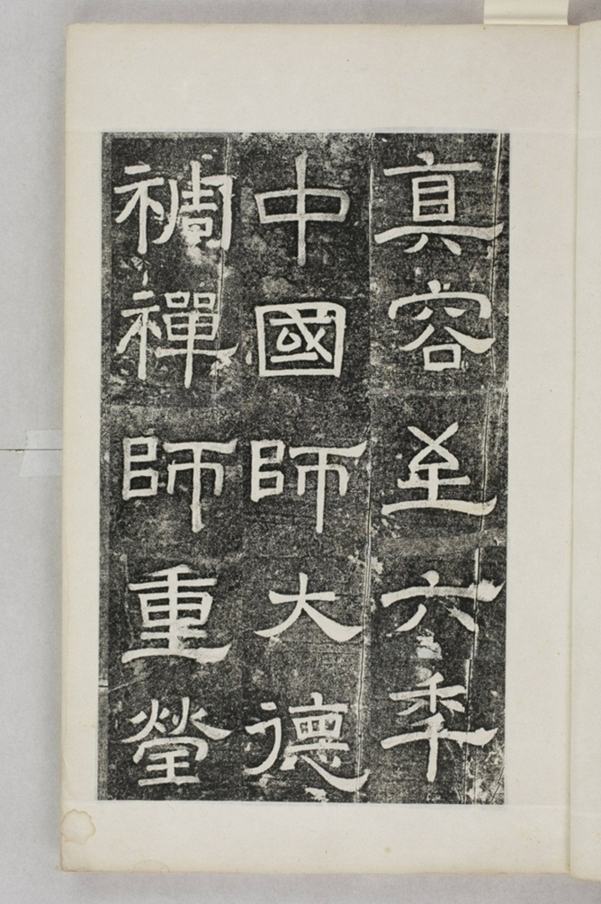 真容至六秊
中國師大德
禂禪師重瑩